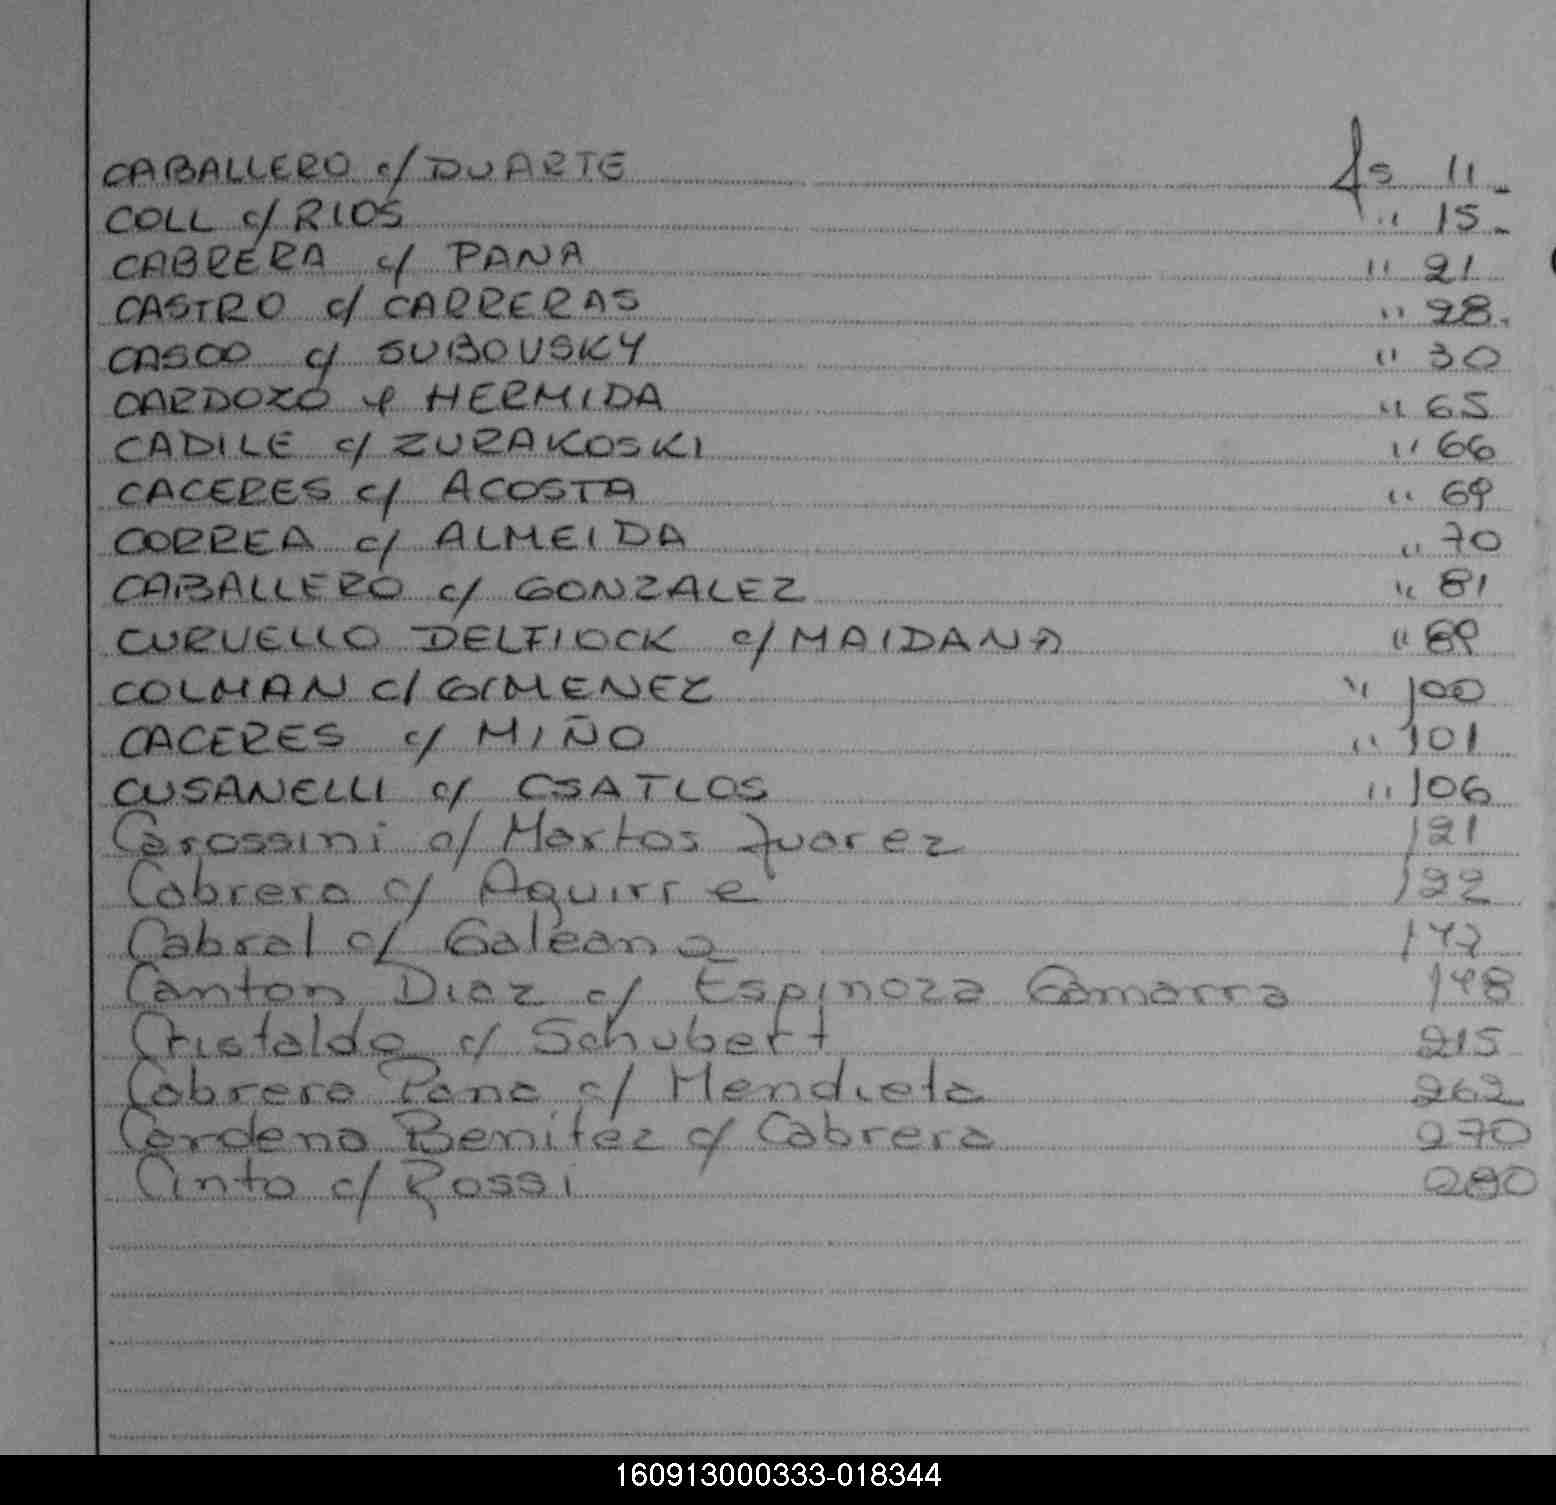 CABALLERO c/ DUARTE fs 11.
COLL c/ RIOS " 15.
CABRERA c/ PANA " 21
CASTRO c/ CARRERAS " 28.
CASCO c/ SUBOVSKY " 30
CARDOZO c/ HERMIDA " 65
CADILE c/ ZURAKOSKI " 66
CACERES c/ ACOSTA " 69
CORREA c/ ALMEIDA " 70
CABALLERO c/ GONZALEZ " 81
CURVELLO DELFIOCK c/ MAIDANA " 89
COLMAN c/ GIMENEZ " 100
CACERES c/ MIÑO " 101
CUSANELLI c/ CSATLOS " 106
Carossini c/ Martos Juarez 121
Cabrera c/ Aguirre 122
Cabral c/ Galeano 147
Canton Diaz c/ Espinoza Gamarra 148
Cristaldo c/ Schubert 215
Cabrera Pana c/ Mendieta 262
Cardena Benitez c/ Cabrera 270
Cinto c/ Rossi
160913000333-018344